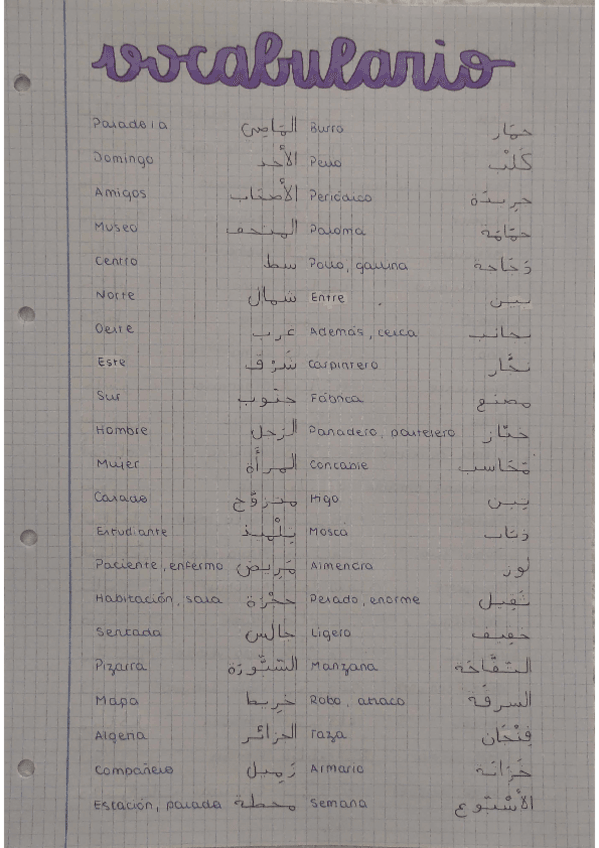 vocabulario
Parada la الماضي Burro حمار
Domingo الأحد Perro كَلْب
Amigos الأصحاب Periódico جريدة
Museo المتحف Paloma حمَامَة
Centro سط Pollo, gallina دَجاجة
Norte شمال Entre بين
Oeste غرب Además, cerca بجانب
Este شَرْق Carpintero نجَّار
Sur جنُوب Fábrica مصنع
Hombre الرجل Panadero, pastelero خبَّاز
Mujer المرأَة Contable مُحَاسب
Casado متزوّج Higo تين
Estudiante تِلْميذ Mosca ذباب
Paciente, enfermo مَرِيض Almendra لوز
Habitación, sala حُجْرَة Pesado, enorme ثَقِيل
Sentada جالس Ligero خفيف
Pizarra السَّبُّورَة Manzana التفَّاحَة
Mapa خرِيط Robo, atraco السرقَة
Algeria الجزائر Taza فِنْجَان
Compañero زَمِيل Armario خَزانَة
Estación, parada محطة Semana الأسْبُوع